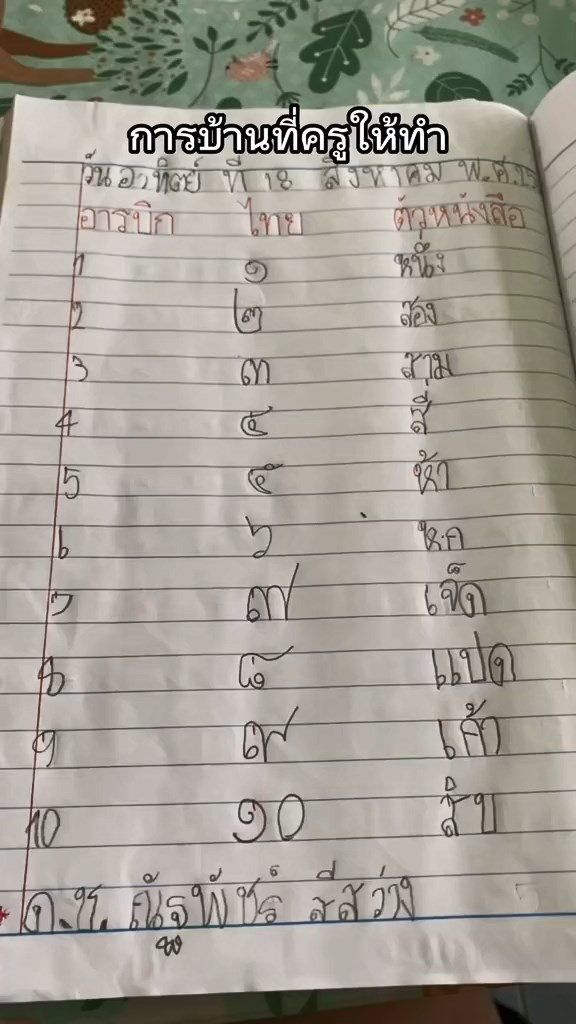 การบ้านที่ครูให้ทำ
วันอาทิตย์ ที่ 18 สิงหาคม พ.ศ.
อารบิก ไทย ตัวหนังสือ
1 ๑ หนึ่ง
2 ๒ สอง
3 ๓ สาม
4 ๔ สี่
5 ๕ ห้า
6 ๖ หก
7 ๗ เจ็ด
8 ๘ แปด
9 ๙ เก้า
10 ๑๐ สิบ
ด.ช. ณัฐพัชร์ สีสว่าง